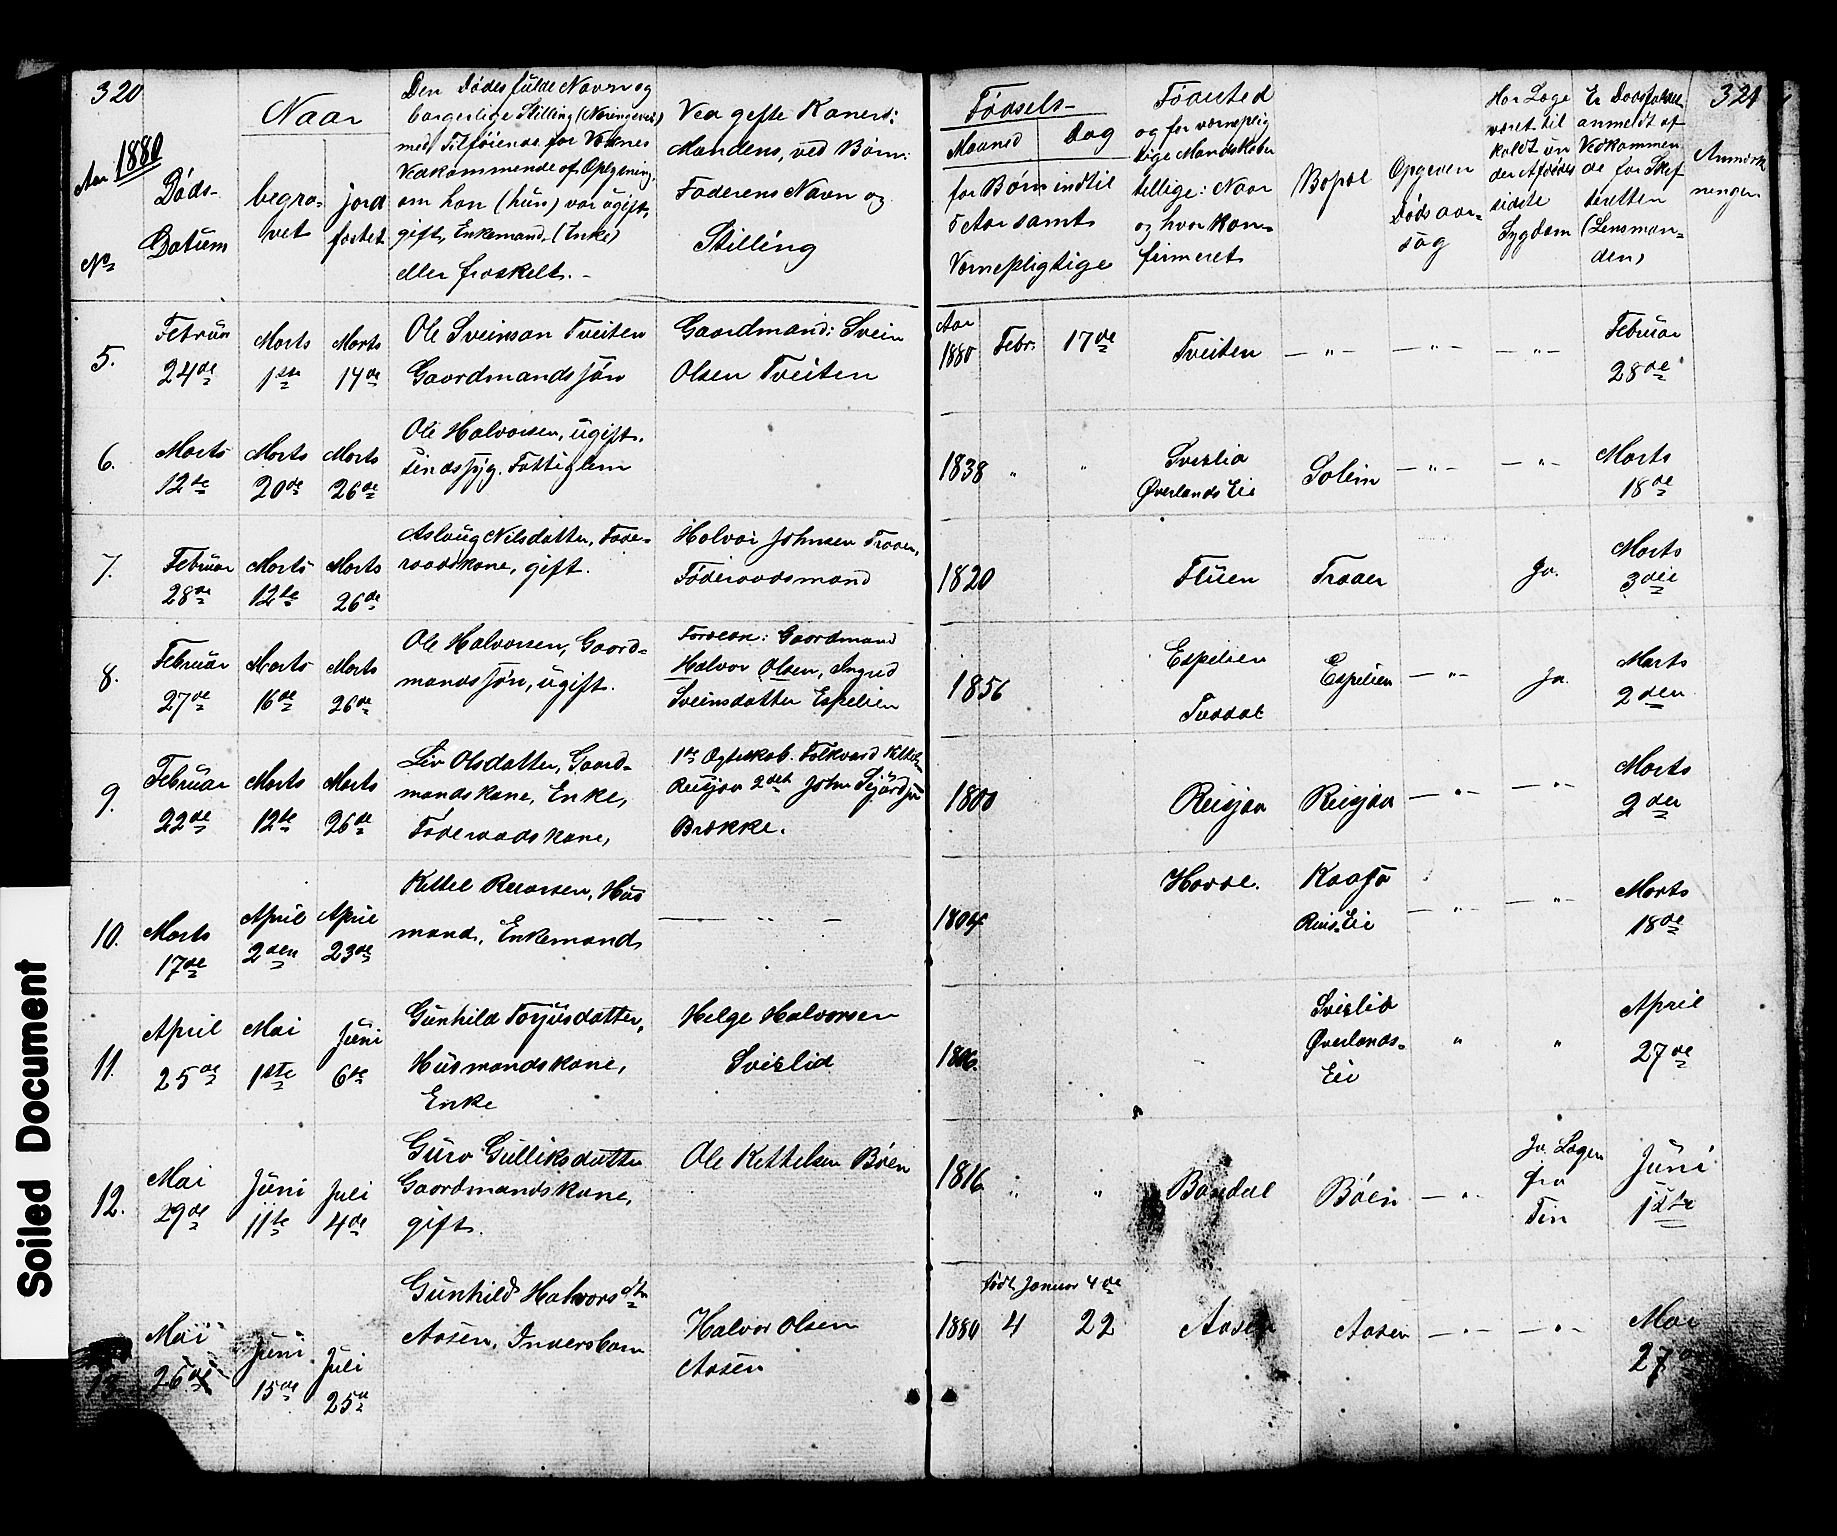 320
Aar 1880
No
Døds-
Datum
Naar
begra-
vet
jord
fæstet
Den Dødes fulde Navn og
borgerlige Stilling (Næringsvei)
med Tilføiende for Voksnes
Vedkommende af Oplysning
om han (hun) var ugift,
gift, Enkemand, (Enke)
eller fraskilt. -
Ved gifte Koner:
Mandens, ved Børn:
Faderens Navn og
Stilling
Fødsels-
Maaned
Dag
for Børn indtil
5 Aar samt
Værnepligtige
Fødested
og for værneplig
tige Mandskaber
tillige: Naar
og hvor kon-
firmeret
Bopæl
Opgiven
Dødsaar-
sag
Har Læge
været til
kaldt i den Afdødes
sidste
Sygdom
Er Dødsfaldet
anmeldt af
Vedkommen
de for Skif
teretten
(Lensman-
den)
321
Anmærk
ninger
5.
Februar
24de
Marts
1ste
Marts
14de
Ole Sveinson Tveiten
Gaardmandssøn
Gaardmand: Svein
Olsen Tveiten
Aar
1880
Febr.
17de
Tveiten
— " —
— " —
— " —
Februar
28de
6.
Marts
12te
Marts
20de
Marts
26de
Ole Halvorsen, ugift,
sindssyg. Fattiglem
1838
"
"
Svislid
Øverlands Eie
Solem
— " —
— " —
Marts
18de
7.
Februar
28de
Marts
12te
Marts
26de
Aslaug Nilsdatter, Føde-
raadskone, gift.
Halvor Johnsen Traaen,
Føderaadsmand
1820
Traaen
Ja.
Marts
3die
8.
Februar
27de
Marts
16de
Marts
26de
Ole Halvorsen, Gaard-
mandssøn, ugift.
Forældr: Gaardmand
Halvor Olsen, Ingrid
Sveinsdatter Espelien
1856
Espelien
Espelien
— " —
Ja
Marts
2den
9.
Februar
22de
Marts
12te
Marts
26de
Liv Olsdatter, Gaard-
mandskone, Enke,
Føderaadskone,
1te Ægteskab. Folkvard Kittels
Reisjaa 2det John Sjurdsøn
Brække.
1800
Reisjaa
Reisjaa
— " —
— " —
Marts
2den
10.
Marts
17de
April
2den
April
23de
Kittel Reiarsen, Hus
mand, Enkemand,
— " —
1804
Hovde.
Kaasa
Reins Eie
— " —
— " —
Marts
18de
11.
April
25de
Mai
1ste
Juni
6te
Gunhild Torjusdatter,
Husmandskone,
Enke
Helge Halvorsen
Svislid
1806.
Svislid
Øverlands-
Eie
"
"
April
27de
12.
Mai
29de
Juni
11te
Juli
4de
Guro Gulliksdatter
Gaardmandskone,
gift.
Ole Kettelsen Bøen
1816
"
"
Bøen
— " —
Ja. Lægen
fra
Tin
Juni
1ste
13
Mai
26de
Juni
15de
Juli
25de
Gunhild Halvorsdtr
Aasen, Inderstbarn
Halvor Olsen
Aasen
født Januar 4de
1880
4
22
Aasen
Aasen
— " —
— " —
Mai
27de
Soiled Document